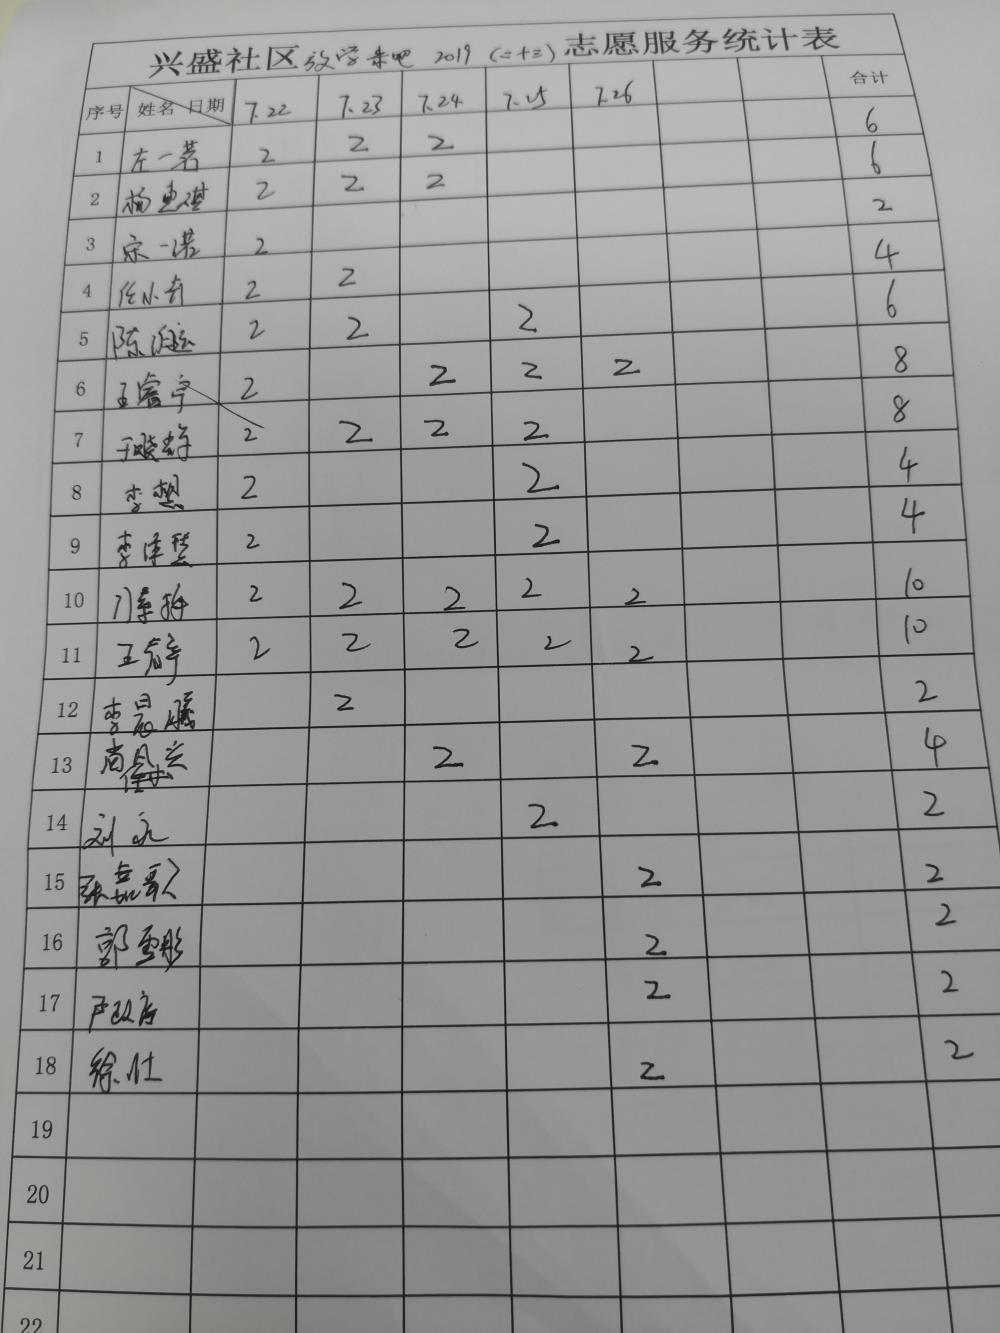 兴盛社区放学来吧 2019 (二十三) 志愿服务统计表
序号 姓名 日期 7.22 7.23 7.24 7.25 7.26 合计
1 左一茗 2 2 2 6
2 杨惠琪 2 2 2 6
3 宋一诺 2 2
4 任小奇 2 2 4
5 陈 2 2 2 6
6 王睿宁 2 2 2 2 8
7 于晓静 2 2 2 2 8
8 李想 2 2 4
9 李泽慧 2 2 4
10 2 2 2 2 2 10
11 王睿宁 2 2 2 2 2 10
12 李晨曦 2 2
13 尚 2 2 4
14 刘永 2 2
15 张嘉歌 2 2
16 郭雪彤 2 2
17 严政府 2 2
18 徐壮 2 2
19
20
21
22